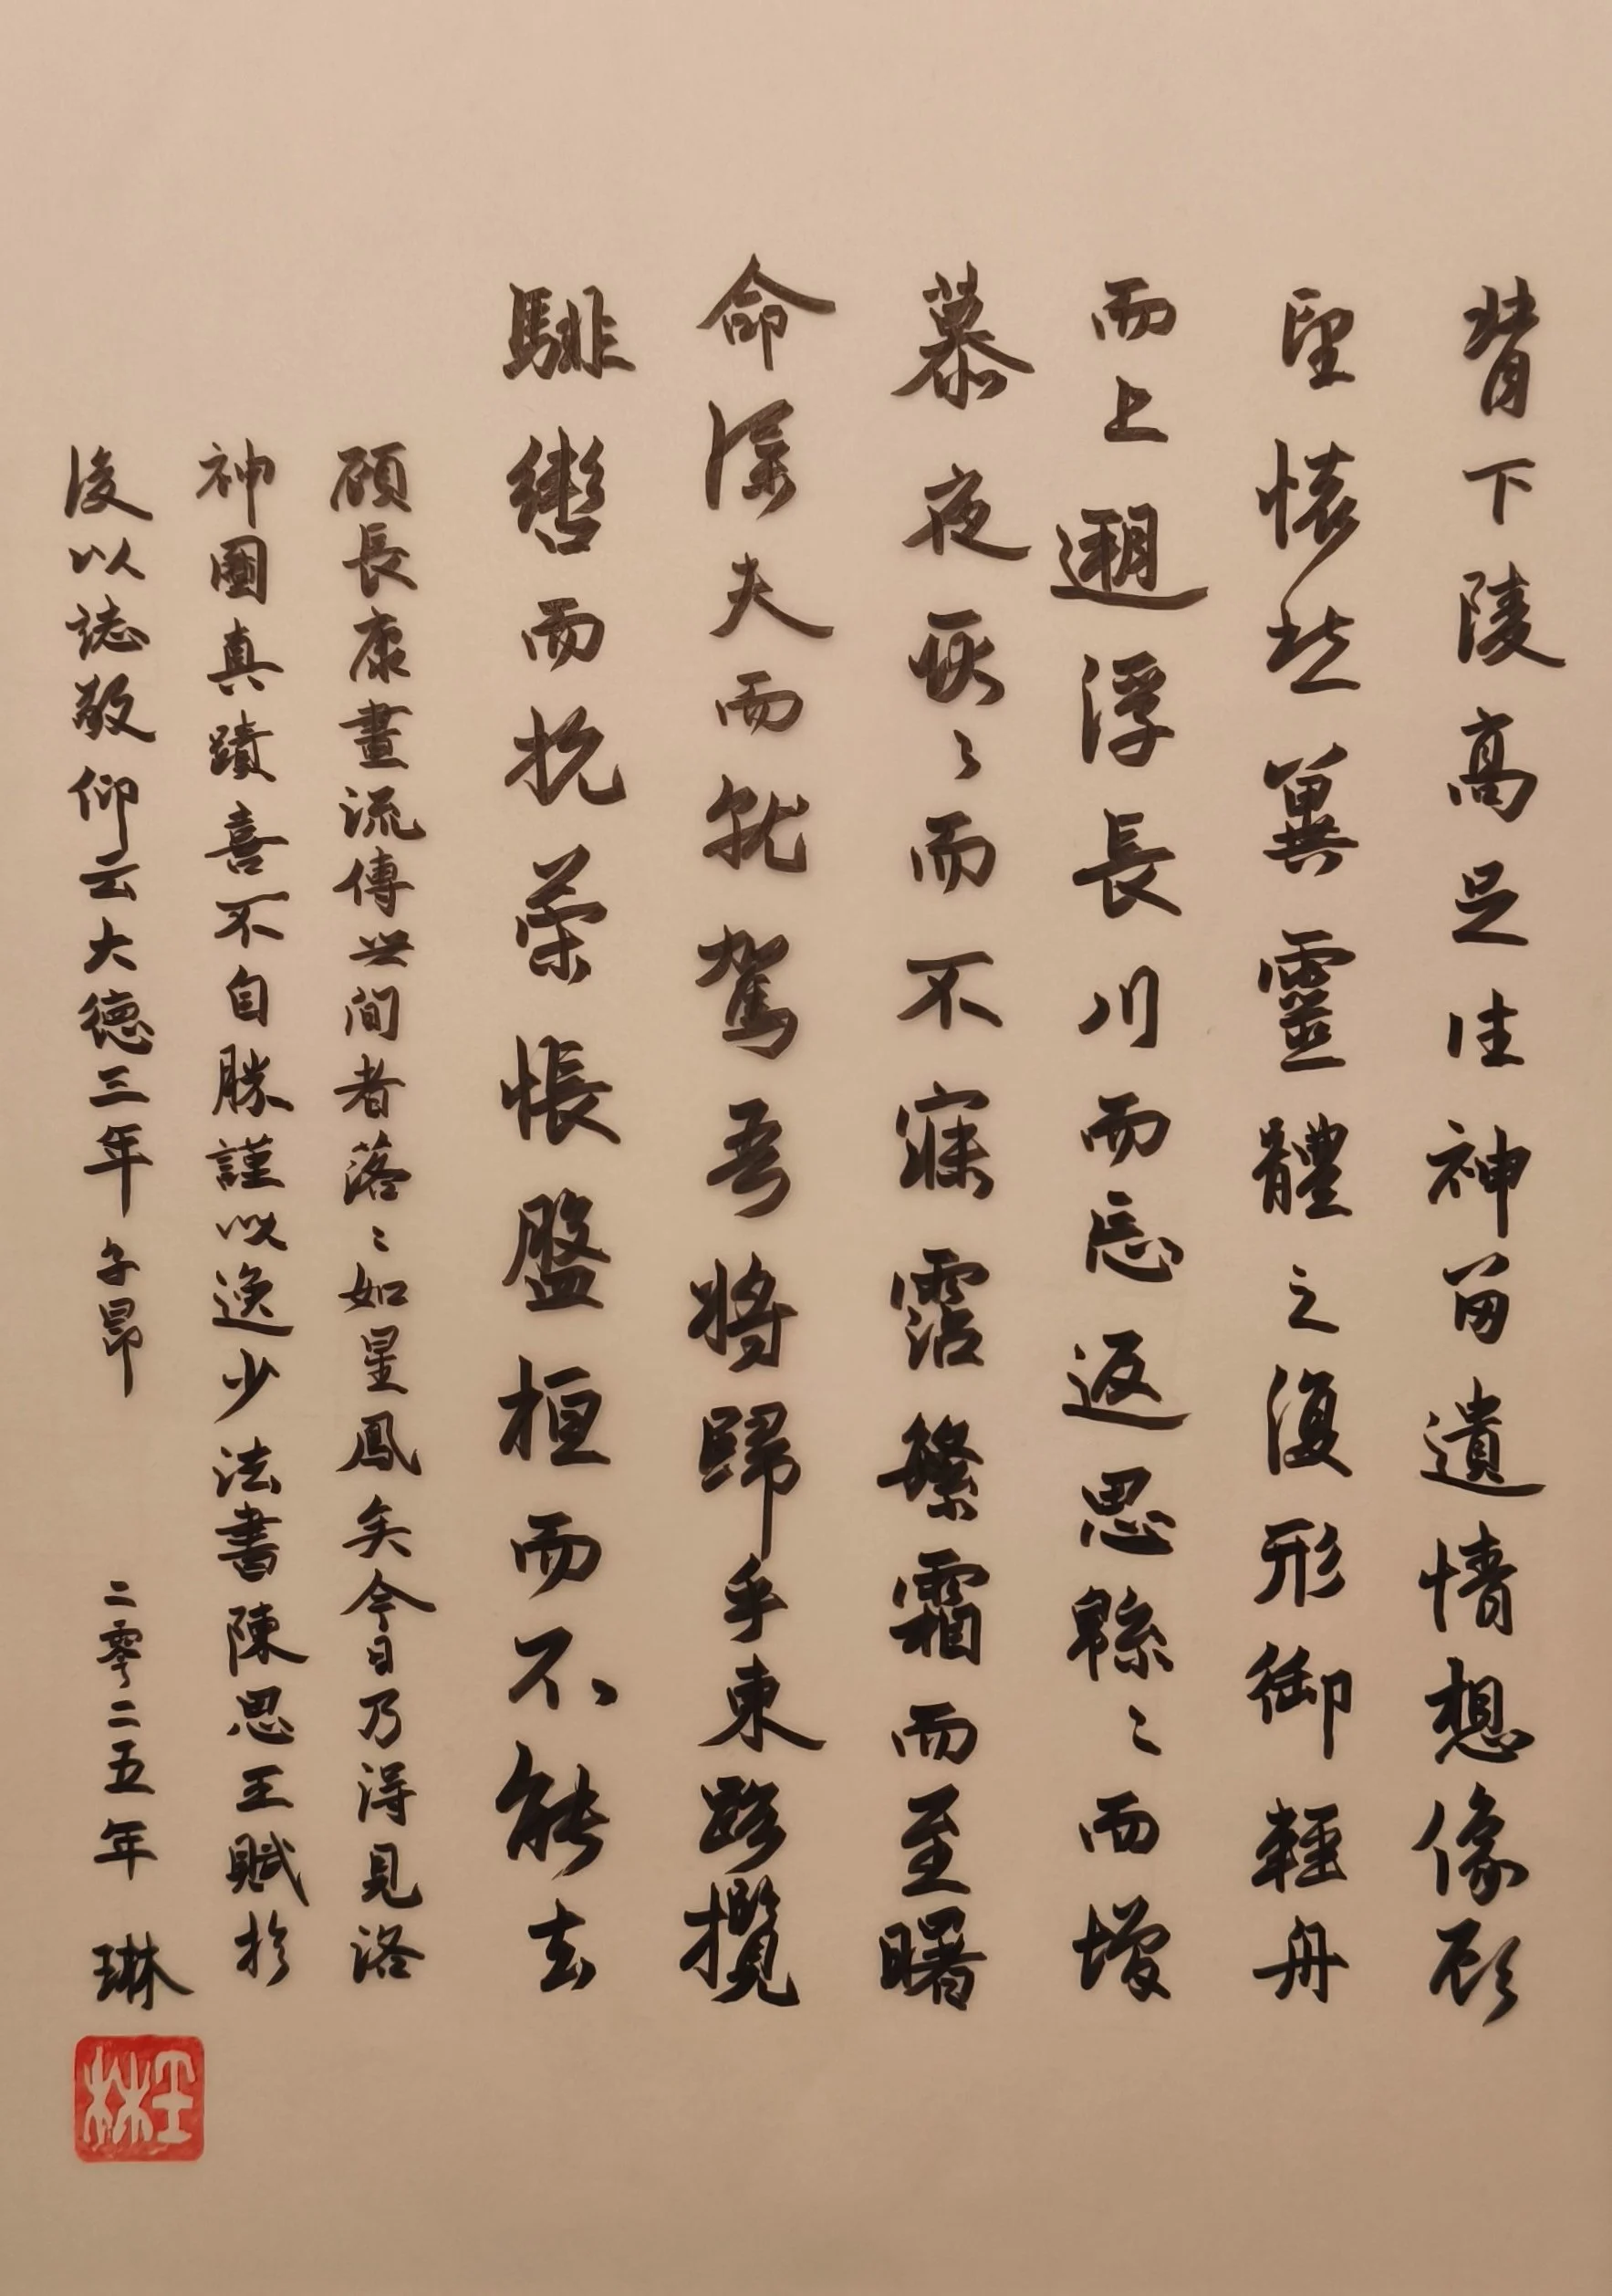 背下陵高足往神留遺情想像顾
望懷愁冀靈體之復形御輕舟
而上遡浮長川而忘返思緜〻而增
慕夜耿〻而不寐霑繁霜而至曙
命僕夫而就駕吾將歸乎東路攬
騑轡而抗策悵盤桓而不能去
顧長康畫流傳世間者落〻如星鳳矣今日乃得見洛
神圖真蹟喜不自勝謹以逸少法書陳思王賦於
後以誌敬仰云大德三年子昂
二零二五年 琳